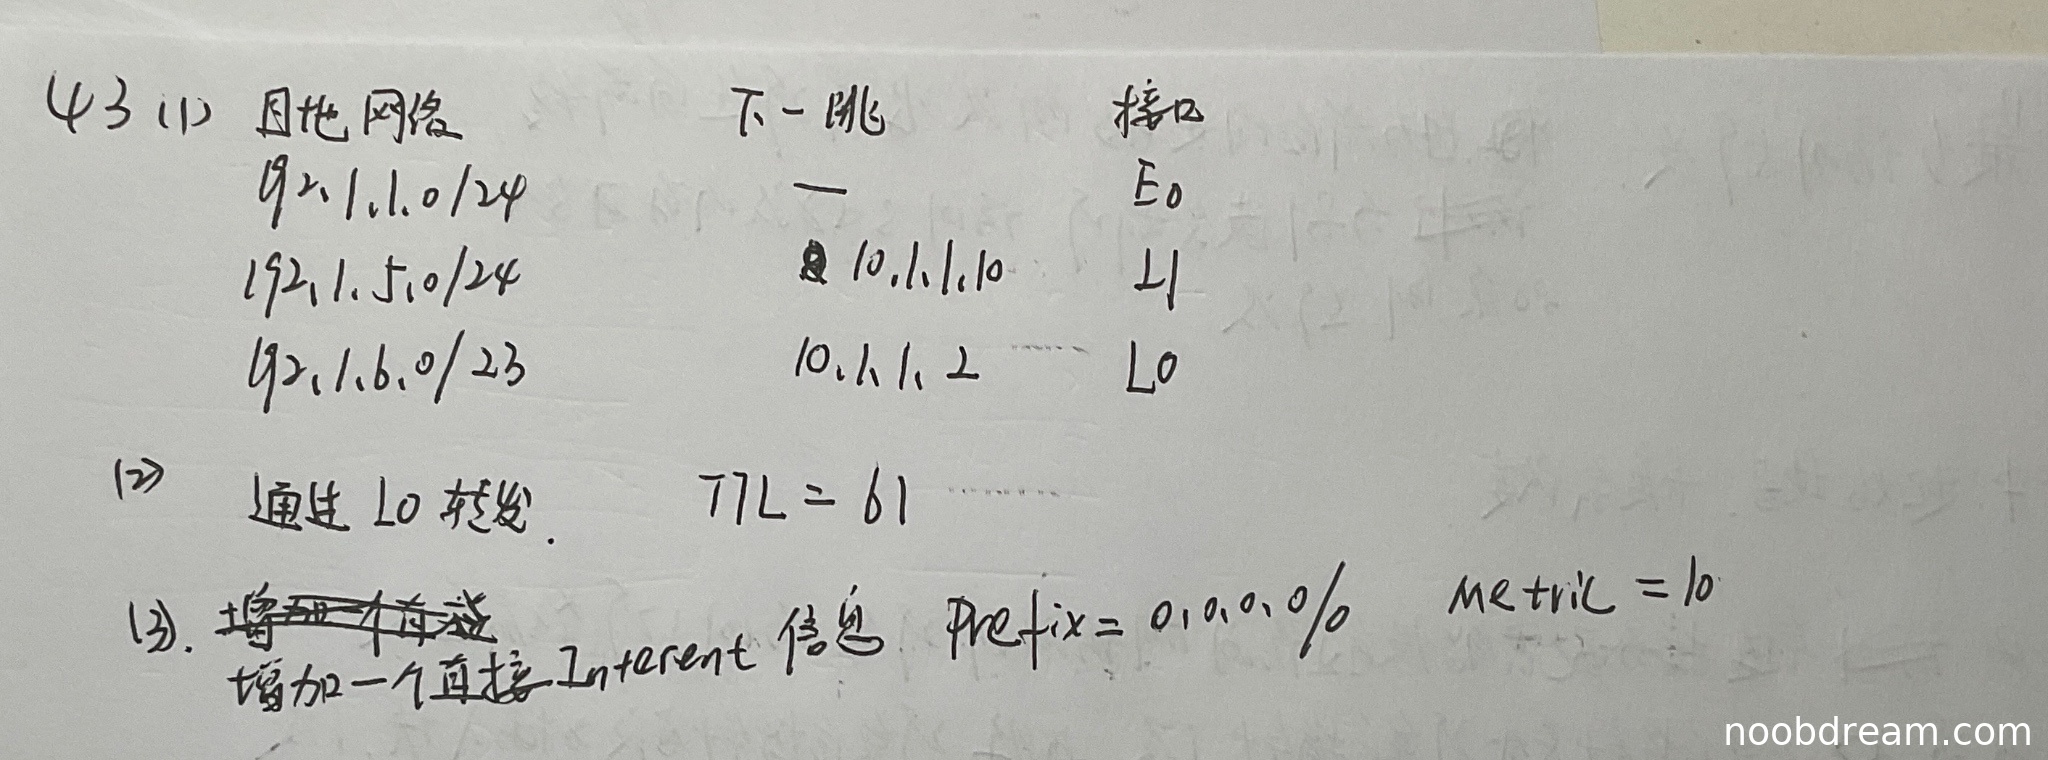 43 (1) 目地网络 下一跳 接口
192.1.1.0/24 — E0
192.1.5.0/24 10.1.1.10 L1
192.1.6.0/23 10.1.1.2 L0
(2) 通过 L0 转发. TTL = 61
(3). 增加一个直接
增加一个直接 Interent 信息 Prefix = 0.0.0.0/0 Metric = 10
noobdream.com